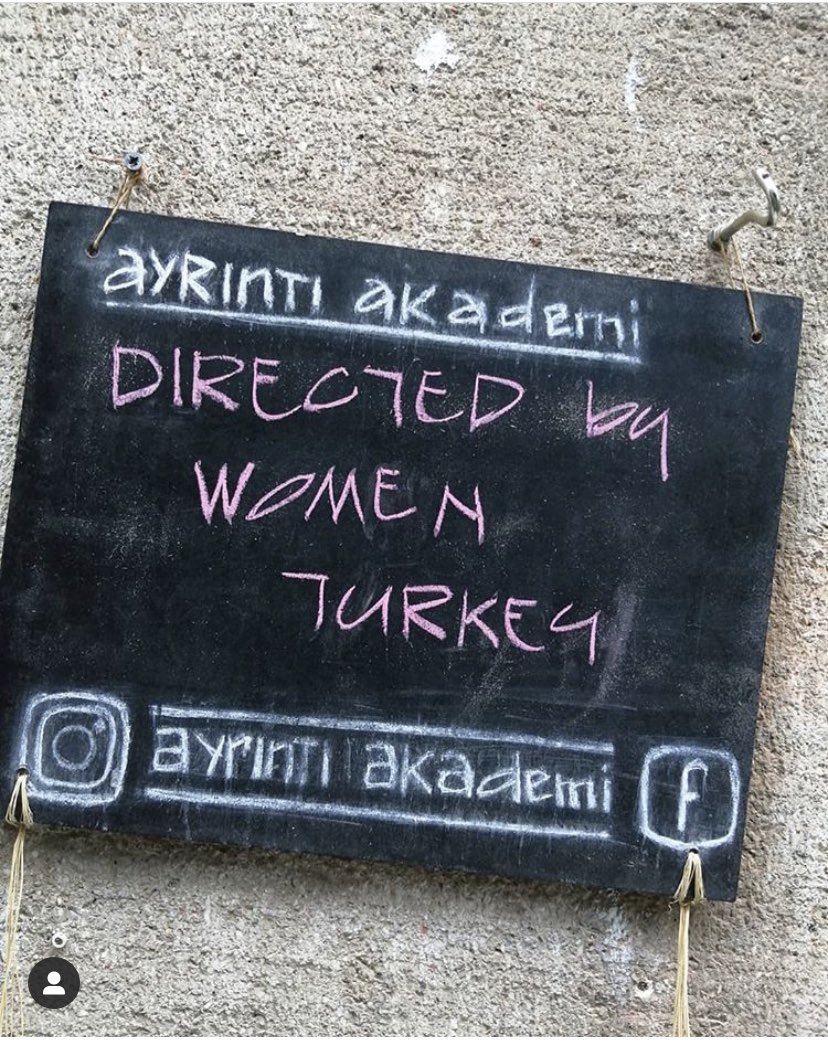 ayrıntı akademi
DIRECTED by
WOMEN
TURKEY
ayrıntı akademi
f